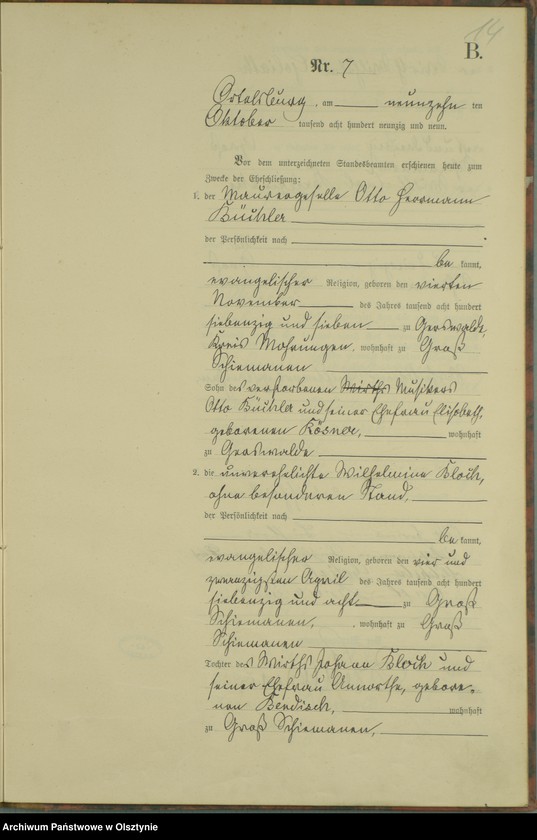 14
B.
Nr. 7
Ortelsburg, am neunzehn ten
Oktober tausend acht hundert neunzig und neun.
Vor dem unterzeichneten Standesbeamten erschienen heute zum
Zwecke der Eheschließung:
1. der Maurergeselle Otto Herrmann
Küchler
der Persönlichkeit nach
be kannt,
evangelischer Religion, geboren den vierten
November des Jahres tausend acht hundert
siebenzig und sieben zu Gerswalde,
Kreis Mohrungen, wohnhaft zu Groß
Schiemanen
Sohn des verstorbenen Wirths Musikers
Otto Küchler und seiner Ehefrau Elisabeth,
geborenen Kösner, wohnhaft
zu Gerswalde
2. die unverehelichte Wilhelmine Kloch,
ohne besonderen Stand,
der Persönlichkeit nach
be kannt,
evangelischer Religion, geboren den vier und
zwanzigsten April des Jahres tausend acht hundert
siebenzig und acht zu Groß
Schiemanen, wohnhaft zu Groß
Schiemanen
Tochter des Wirths Johann Kloch und
seiner Ehefrau geborе-
nen wohnhaft
zu Groß Schiemanen,
Archiwum Państwowe w Olsztynie